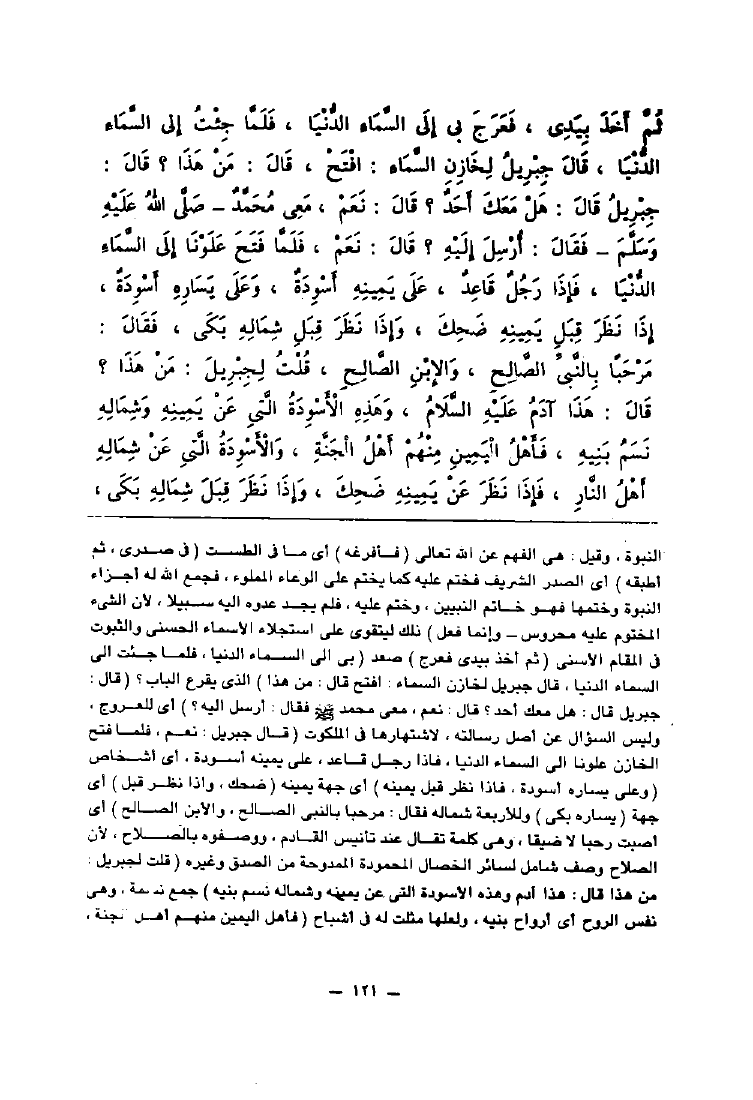 ثُمَّ أَخَذَ بِيَدِى ، فَعَرَجَ بِى إِلَى السَّمَاءِ الدُّنْيَا ، فَلَمَّا جِئْتُ إِلَى السَّمَاءِ
الدُّنْيَا ، قَالَ جِبْرِيلُ لِخَازِنِ السَّمَاءِ : افْتَحْ ، قَالَ : مَنْ هَذَا ؟ قَالَ :
جِبْرِيلُ قَالَ : هَلْ مَعَكَ أَحَدٌ ؟ قَالَ : نَعَمْ ، مَعِى مُحَمَّدٌ – صَلَّى اللهُ عَلَيْهِ
وَسَلَّمَ – فَقَالَ : أُرْسِلَ إِلَيْهِ ؟ قَالَ : نَعَمْ ، فَلَمَّا فَتَحَ عَلَوْنَا إِلَى السَّمَاءِ
الدُّنْيَا ، فَإِذَا رَجُلٌ قَاعِدٌ ، عَلَى يَمِينِهِ أَسْوِدَةٌ ، وَعَلَى يَسَارِهِ أَسْوِدَةٌ ،
إِذَا نَظَرَ قِبَلَ يَمِينِهِ ضَحِكَ ، وَإِذَا نَظَرَ قِبَلَ شِمَالِهِ بَكَى ، فَقَالَ :
مَرْحَبًا بِالنَّبِىِّ الصَّالِحِ ، وَالِابْنِ الصَّالِحِ ، قُلْتُ لِجِبْرِيلَ : مَنْ هَذَا ؟
قَالَ : هَذَا آدَمُ عَلَيْهِ السَّلَامُ ، وَهَذِهِ الْأَسْوِدَةُ الَّتِى عَنْ يَمِينِهِ وَشِمَالِهِ
نَسَمُ بَنِيهِ ، فَأَهْلُ الْيَمِينِ مِنْهُمْ أَهْلُ الْجَنَّةِ ، وَالْأَسْوِدَةُ الَّتِى عَنْ شِمَالِهِ
أَهْلُ النَّارِ ، فَإِذَا نَظَرَ عَنْ يَمِينِهِ ضَحِكَ ، وَإِذَا نَظَرَ قِبَلَ شِمَالِهِ بَكَى ،
النبوة ، وقيل : هى الفهم عن الله تعالى ( فأفرغه ) أى ما فى الطست ( فى صدرى ، ثم
أطبقه ) أى الصدر الشريف فختم عليه كما يختم على الوعاء المملوء ، فجمع الله له أجزاء
النبوة وختمها فهو خاتم النبيين ، وختم عليه ، فلم يجد عدوه اليه سبيلا ، لأن الشىء
المختوم عليه محروس – وإنما فعل ) ذلك ليتقوى على استجلاء الأسماء الحسنى والثبوت
فى المقام الأسنى ( ثم أخذ بيدى فعرج ) صعد ( بى الى السماء الدنيا ، فلما جئت الى
السماء الدنيا ، قال جبريل لخازن السماء : افتح قال : من هذا ) الذى يقرع الباب ؟ ( قال :
جبريل قال : هل معك أحد ؟ قال : نعم ، معى محمد ﷺ فقال : أرسل اليه ؟ ) أى للعروج ،
وليس السؤال عن أصل رسالته ، لاشتهارها فى الملكوت ( قال جبريل : نعم ، فلما فتح
الخازن علونا الى السماء الدنيا ، فاذا رجل قاعد ، على يمينه أسودة ، أى أشخاص
( وعلى يساره أسودة ، فاذا نظر قبل يمينه ) أى جهة يمينه ( ضحك ، واذا نظر قبل ) أى
جهة ( يساره بكى ) وللأربعة شماله فقال : مرحبا بالنبى الصالح ، والأبن الصالح ) أى
أصبت رحبا لا ضيقا ، وهى كلمة تقال عند تأنيس القادم ، ووصفوه بالصلاح ، لأن
الصلاح وصف شامل لسائر الخصال المحمودة الممدوحة من الصدق وغيره ( قلت لجبريل :
من هذا قال : هذا آدم وهذه الأسودة التى عن يمينه وشماله نسم بنيه ) جمع نسمة ، وهى
نفس الروح أى أرواح بنيه ، ولعلها مثلت له فى أشباح ( فأهل اليمين منهم أهل الجنة ،
– ١٢١ –